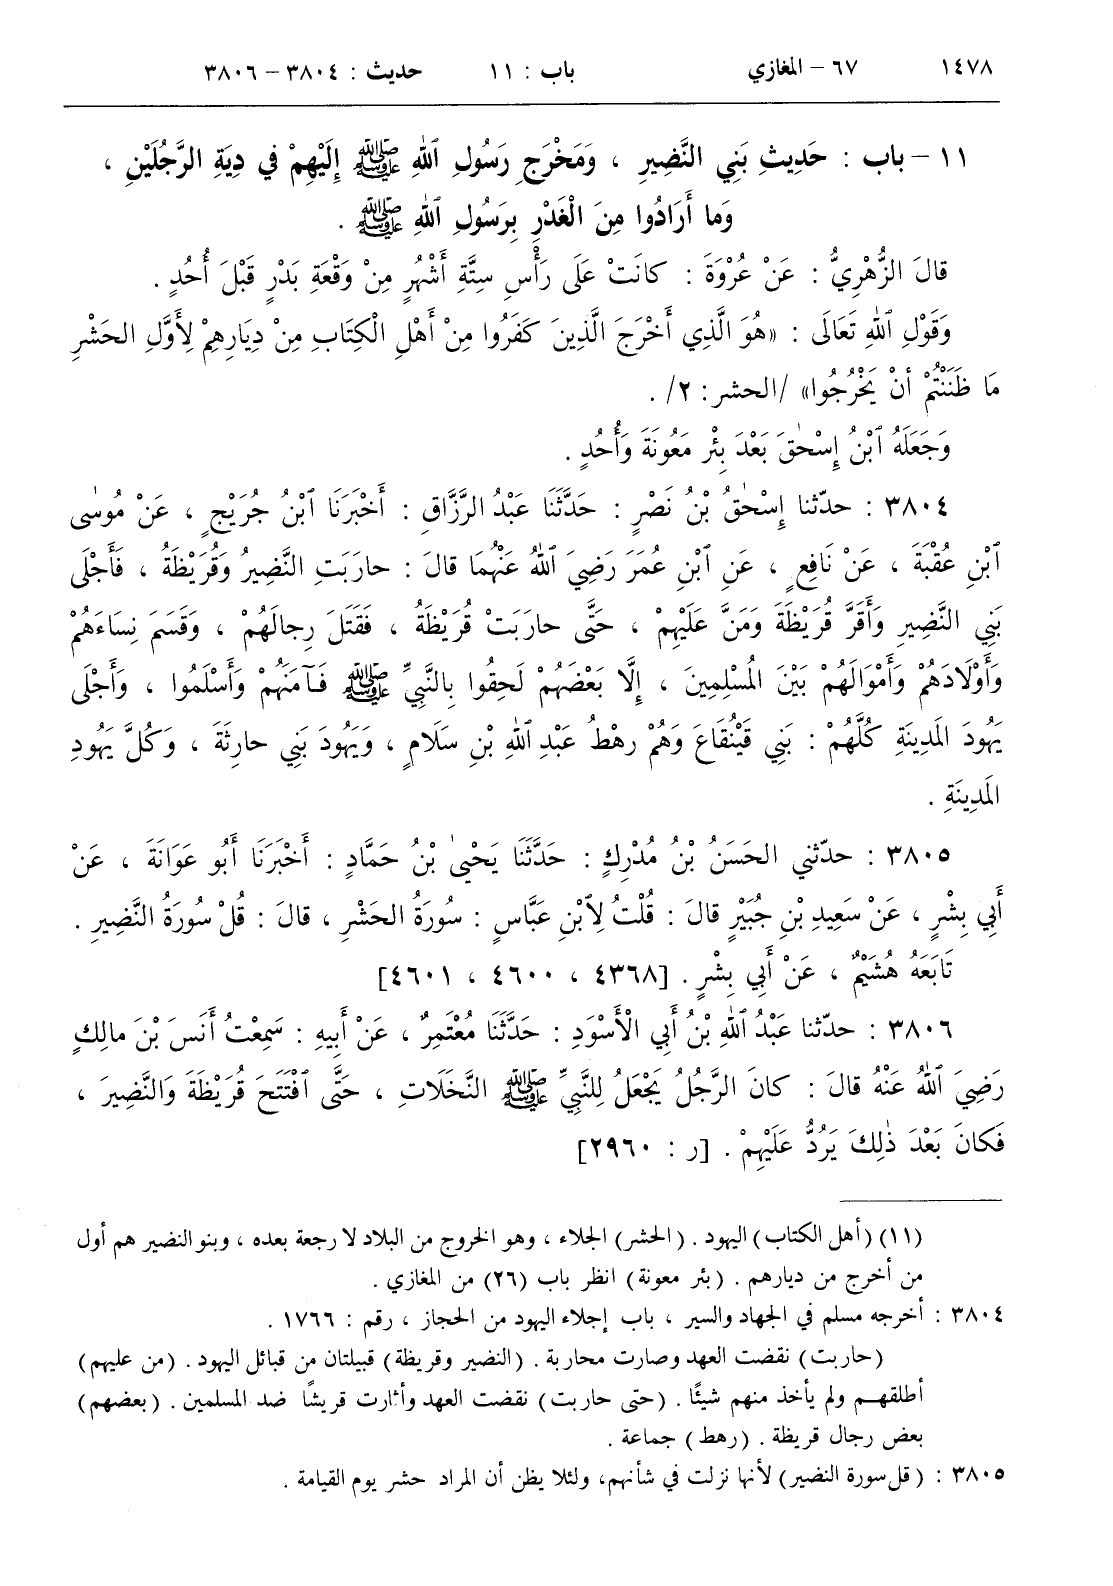 ١٤٧٨ ٦٧ – المغازي باب : ١١ حديث : ٣٨٠٤ – ٣٨٠٦
١١ – باب : حَدِيثِ بَنِي النَّضِيرِ ، وَمَخْرَجِ رَسُولِ ٱللهِ ﷺ إِلَيْهِمْ في دِيَةِ الرَّجُلَيْنِ ،
وَما أَرَادُوا مِنَ الْغَدْرِ بِرَسُولِ ٱللهِ ﷺ .
قالَ الزُّهْرِيُّ : عَنْ عُرْوَةَ : كانَتْ عَلَى رَأْسِ سِتَّةِ أَشْهُرٍ مِنْ وَقْعَةِ بَدْرٍ قَبْلَ أُحُدٍ .
وَقَوْلِ ٱللهِ تَعَالَى : «هُوَ الَّذِي أَخْرَجَ الَّذِينَ كَفَرُوا مِنْ أَهْلِ الْكِتَابِ مِنْ دِيَارِهِمْ لِأَوَّلِ الحَشْرِ
مَا ظَنَنْتُمْ أَنْ يَخْرُجُوا» /الحشر: ٢/ .
وَجَعَلَهُ ٱبْنُ إِسْحٰقَ بَعْدَ بِئْرِ مَعُونَةَ وَأُحُدٍ .
٣٨٠٤ : حدّثنا إِسْحٰقُ بْنُ نَصْرٍ : حَدَّثَنَا عَبْدُ الرَّزَّاقِ : أَخْبَرَنَا ٱبْنُ جُرَيْجٍ ، عَنْ مُوسٰى
ٱبْنِ عُقْبَةَ ، عَنْ نَافِعٍ ، عَنِ ٱبْنِ عُمَرَ رَضِيَ ٱللهُ عَنْهُمَا قالَ : حارَبَتِ النَّضِيرُ وَقُرَيْظَةُ ، فَأَجْلَى
بَنِي النَّضِيرِ وَأَقَرَّ قُرَيْظَةَ وَمَنَّ عَلَيْهِمْ ، حَتَّى حارَبَتْ قُرَيْظَةُ ، فَقَتَلَ رِجالَهُمْ ، وَقَسَمَ نِسَاءَهُمْ
وَأَوْلَادَهُمْ وَأَمْوَالَهُمْ بَيْنَ المُسْلِمِينَ ، إِلَّا بَعْضَهُمْ لَحِقُوا بِالنَّبِيِّ ﷺ فَآمَنَهُمْ وَأَسْلَمُوا ، وَأَجْلَى
يَهُودَ المَدِينَةِ كُلَّهُمْ : بَنِي قَيْنُقَاعَ وَهُمْ رَهْطُ عَبْدِ ٱللهِ بْنِ سَلَامٍ ، وَيَهُودَ بَنِي حارِثَةَ ، وَكُلَّ يَهُودِ
المَدِينَةِ .
٣٨٠٥ : حدّثني الحَسَنُ بْنُ مُدْرِكٍ : حَدَّثَنَا يَحْيىٰ بْنُ حَمَّادٍ : أَخْبَرَنَا أَبُو عَوَانَةَ ، عَنْ
أَبِي بِشْرٍ ، عَنْ سَعِيدِ بْنِ جُبَيْرٍ قالَ : قُلْتُ لِٱبْنِ عَبَّاسٍ : سُورَةُ الحَشْرِ ، قالَ : قُلْ سُورَةُ النَّضِيرِ .
تَابَعَهُ هُشَيْمٌ ، عَنْ أَبِي بِشْرٍ . [٤٣٦٨ ، ٤٦٠٠ ، ٤٦٠١]
٣٨٠٦ : حدّثنا عَبْدُ ٱللهِ بْنُ أَبِي الْأَسْوَدِ : حَدَّثَنَا مُعْتَمِرٌ ، عَنْ أَبِيهِ : سَمِعْتُ أَنَسَ بْنَ مالِكٍ
رَضِيَ ٱللهُ عَنْهُ قالَ : كانَ الرَّجُلُ يَجْعَلُ لِلنَّبِيِّ ﷺ النَّخَلَاتِ ، حَتَّى ٱفْتَتَحَ قُرَيْظَةَ وَالنَّضِيرَ ،
فَكانَ بَعْدَ ذٰلِكَ يَرُدُّ عَلَيْهِمْ . [ر : ٢٩٦٠]
(١١) (أهل الكتاب) اليهود . (الحشر) الجلاء ، وهو الخروج من البلاد لا رجعة بعده ، وبنو النضير هم أول
من أخرج من ديارهم . (بئر معونة) انظر باب (٢٦) من المغازي .
٣٨٠٤ : أخرجه مسلم في الجهاد والسير ، باب إجلاء اليهود من الحجاز ، رقم : ١٧٦٦ .
(حاربت) نقضت العهد وصارت محاربة . (النضير وقريظة) قبيلتان من قبائل اليهود . (من عليهم)
أطلقهم ولم يأخذ منهم شيئًا . (حتى حاربت) نقضت العهد وأثارت قريشًا ضد المسلمين . (بعضهم)
بعض رجال قريظة . (رهط) جماعة .
٣٨٠٥ : (قل سورة النضير) لأنها نزلت في شأنهم، ولئلا يظن أن المراد حشر يوم القيامة .